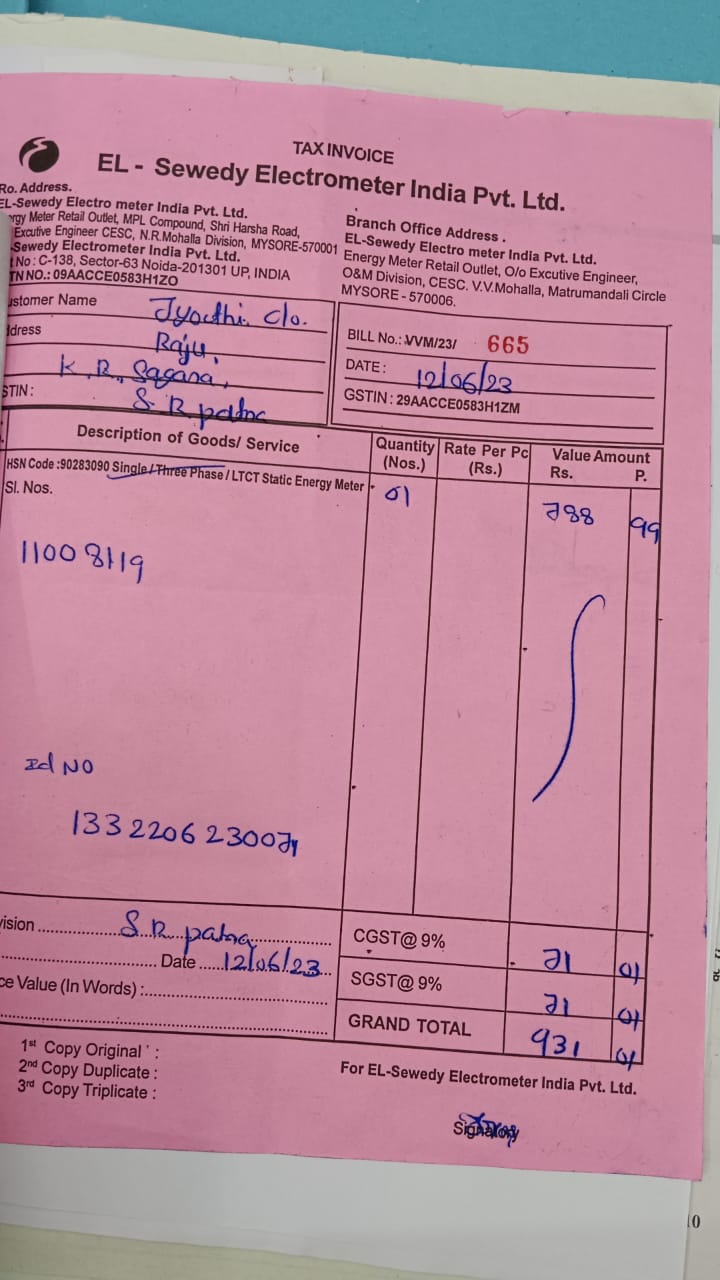 TAX INVOICE
EL - Sewedy Electrometer India Pvt. Ltd.
Ro. Address.
EL-Sewedy Electro meter India Pvt. Ltd.
rgy Meter Retail Outlet, MPL Compound, Shri Harsha Road,
Excutive Engineer CESC, N.R.Mohalla Division, MYSORE-570001
Sewedy Electrometer India Pvt. Ltd.
t No : C-138, Sector-63 Noida-201301 UP, INDIA
TN NO.: 09AACCE0583H1ZO
Branch Office Address .
EL-Sewedy Electro meter India Pvt. Ltd.
Energy Meter Retail Outlet, O/o Excutive Engineer,
O&M Division, CESC. V.V.Mohalla, Matrumandali Circle
MYSORE - 570006.
ustomer Name Jyothi c/o.
ddress Raju,
K.R. Sagara,
STIN : S.R patna
BILL No.: VVM/23/ 665
DATE : 12/06/23
GSTIN : 29AACCE0583H1ZM
Description of Goods/ Service Quantity (Nos.) Rate Per Pc (Rs.) Value Amount Rs. P.
HSN Code :90283090 Single / Three Phase / LTCT Static Energy Meter
Sl. Nos. 01 788 99
11008119
Id NO
133220623007
vision S R patna
Date 12/06/23
ce Value (In Words) :
CGST@ 9% 71 01
SGST@ 9% 71 01
GRAND TOTAL 931 01
1st Copy Original :
2nd Copy Duplicate :
3rd Copy Triplicate :
For EL-Sewedy Electrometer India Pvt. Ltd.
Signatory
10